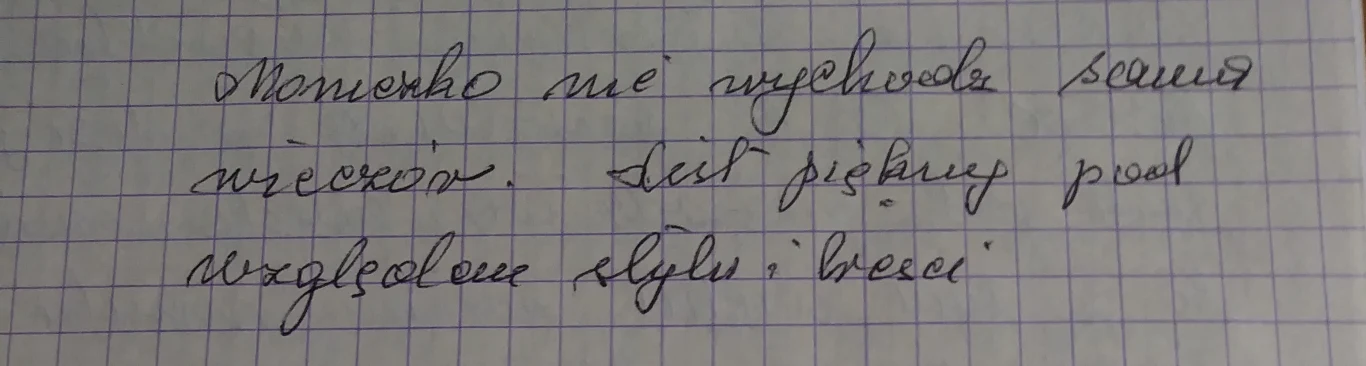 Mamenko nie wychodz sama
wieczór. List piękny pod
względem stylu i treści